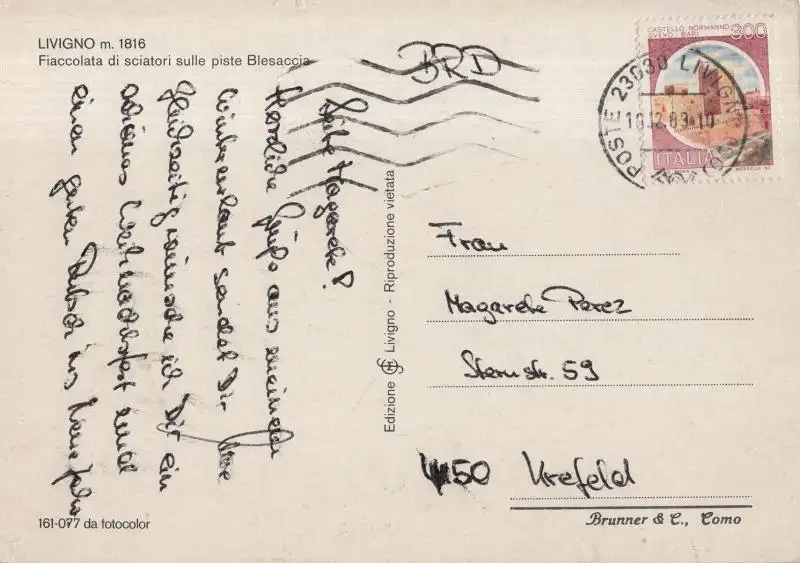 LIVIGNO m. 1816
Fiaccolata di sciatori sulle piste Blesaccia
BRD
CASTELLO NORMANNO
SVEVO BARI 300
ITALIA
POSTE 23030 LIVIGNO (SO)
18.12.89.10
Liebe Magarete!
Herzliche Grüße aus meinem
Winterurlaub sendet Dir
Gleichzeitig wünsche ich Dir ein
schönes Weihnachtsfest und
einen guten Rutsch ins Neue Jahr
Edizione Livigno - Riproduzione vietata
Frau
Magarete Perez
Sternstr. 59
4150 Krefeld
161-077 da fotocolor
Brunner & C., Como